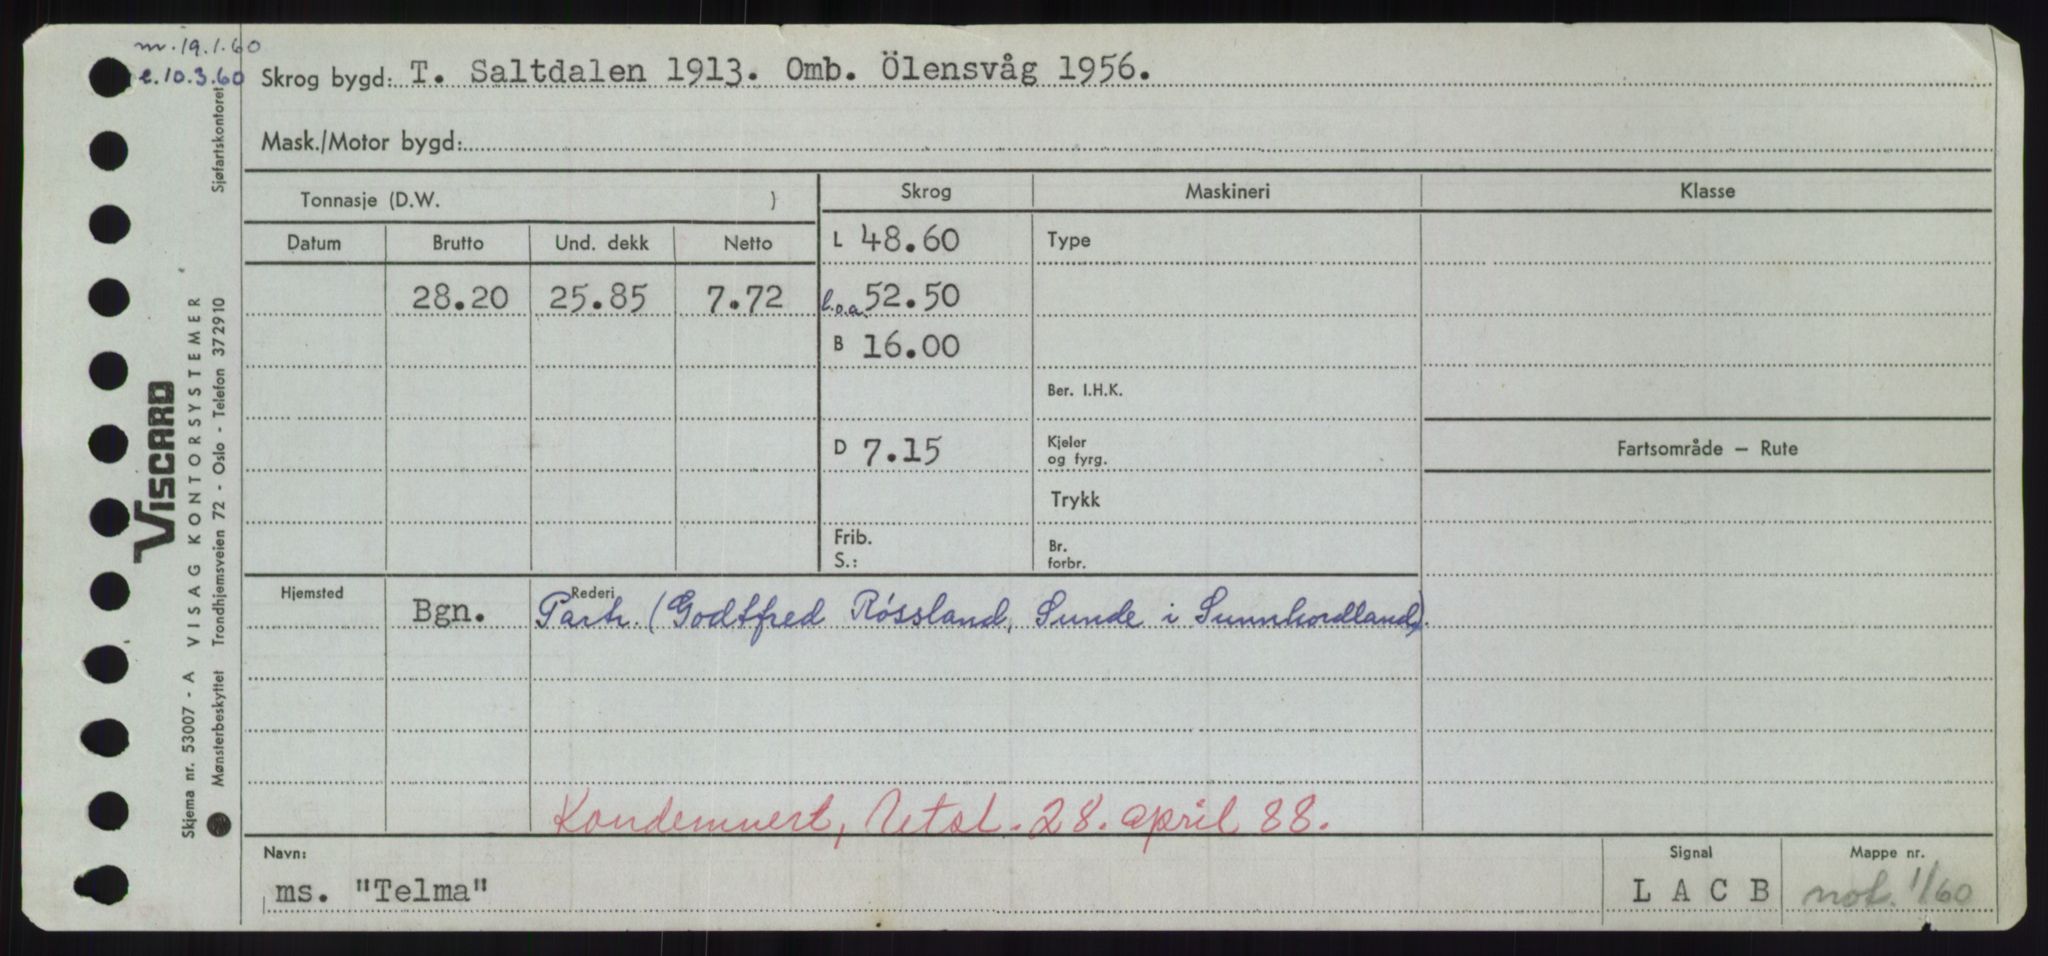 m. 19.1.60
e. 10.3.60
Skrog bygd: T. Saltdalen 1913. Omb. Ölensvåg 1956.
Mask./Motor bygd:
Tonnasje (D.W. )
Skrog
Maskineri
Klasse
Datum
Brutto
Und. dekk
Netto
L 48.60
Type
28.20
25.85
7.72
l.o.a. 52.50
B 16.00
Ber. I.H.K.
D 7.15
Kjeler
og fyrg.
Fartsområde – Rute
Trykk
Frib.
S.:
Br.
forbr.
Hjemsted
Bgn.
Rederi
Partr. (Godtfred Røssland, Sunde i Sunnhordland).
Kondemnert, 28. april 88.
Navn:
ms. "Telma"
Signal
L A C B
Mappe nr.
not. 1/60
VISCARD
VISAG KONTORSYSTEMER
Skjema nr. 53007 - A
Mønsterbeskyttet Trondhjemsveien 72 - Oslo - Telefon 372910 Sjøfartskontoret